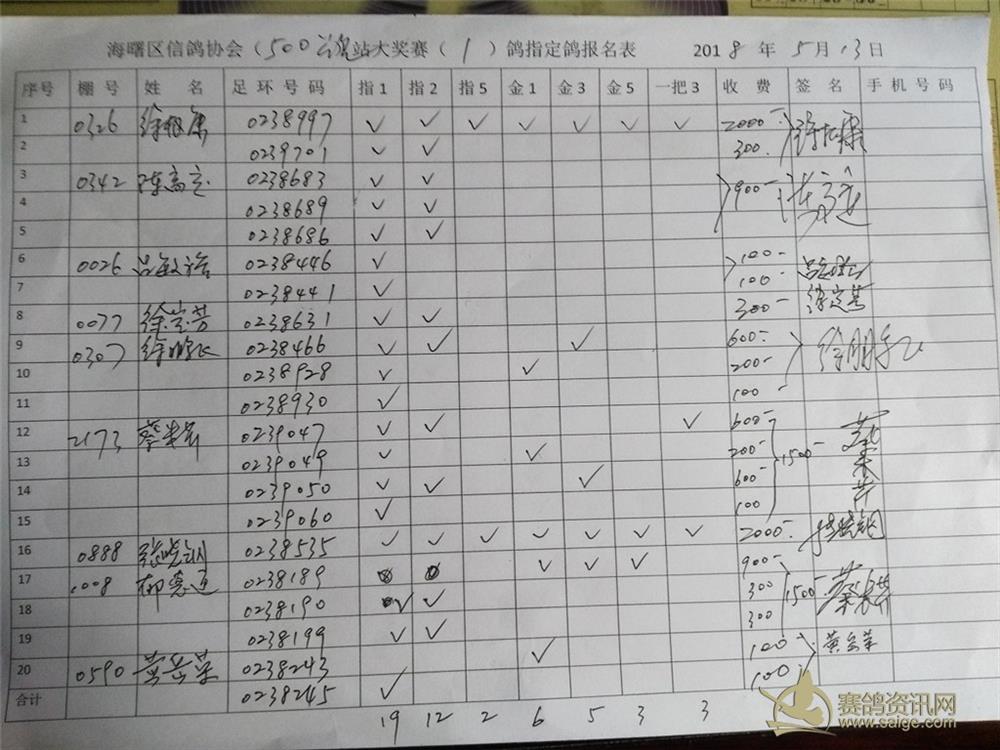 海曙区信鸽协会（500 站大奖赛（1）鸽指定鸽报名表 2018 年 5 月 13 日
序号 棚号 姓名 足环号码 指1 指2 指5 金1 金3 金5 一把3 收费 签名 手机号码
1 0326 0238997 ✓ ✓ ✓ ✓ ✓ ✓ ✓ 2000-
2 0239701 ✓ ✓ 300-
3 0342 陈高定 0238683 ✓ ✓ 900-
4 0238689 ✓ ✓
5 0238686 ✓ ✓
6 0026 0238446 ✓ 100-
7 0238441 ✓ 100
8 0077 徐宝芳 0238631 ✓ ✓ 300-
9 0307 徐鹏飞 0238466 ✓ ✓ ✓ 600- 徐鹏飞
10 0238928 ✓ ✓ 200-
11 0238930 ✓ 100-
12 2173 0239047 ✓ ✓ ✓ 600-
13 0239049 ✓ ✓ 200- 1500-
14 0239050 ✓ ✓ ✓ 600-
15 0239060 ✓ 100
16 0888 0238535 ✓ ✓ ✓ ✓ ✓ ✓ ✓ 2000-
17 1008 柳惠通 0238189 ✓ ✓ ✓ 900-
18 0238190 ✓ ✓ 300 1500-
19 0238199 ✓ ✓ 300
20 0590 黄岳荣 0238243 ✓ 100- 黄岳荣
合计 0238245 ✓ 100-
19 12 2 6 5 3 3
赛鸽资讯网
www.saige.com